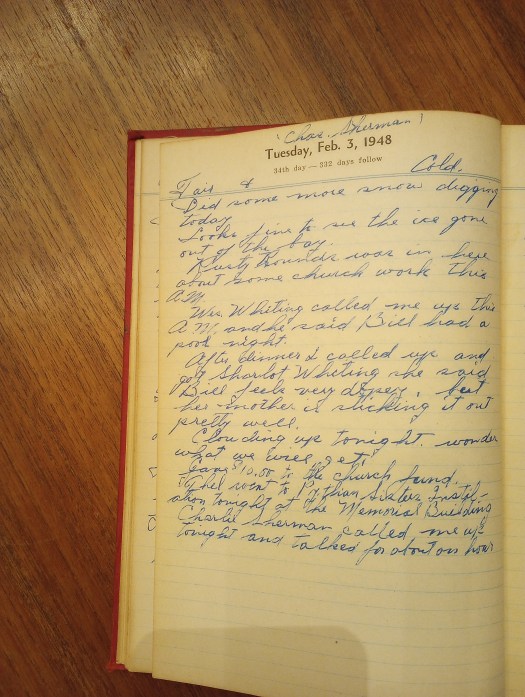 (Chas. Sherman)
Tuesday, Feb. 3, 1948
34th day — 332 days follow
Fair & Cold.
Did some more snow digging
today.
Looks fine to see the ice gone
out of the bay.
Rusty Rounds was in here
about some church work this
A.M.
Wm. Whiting called me up this
A.M. and he said Bill had a
poor night.
After dinner I called up and
got Sharlot Whiting she said
Bill feels very dopey, but
her mother is sticking it out
pretty well.
Clouding up tonight. wonder
what we will get.
Gave $10.00 to the church fund.
Ethel went to Pythian Sisters Instl-
ation tonight at the Memorial Building
Charlie Sherman called me up
tonight and talked for about an hour